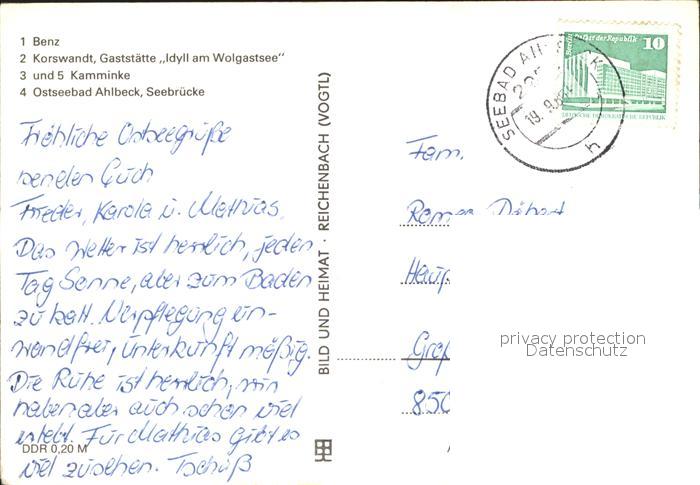 1 Benz
2 Korswandt, Gaststätte „Idyll am Wolgastsee“
3 und 5 Kamminke
4 Ostseebad Ahlbeck, Seebrücke
Fröhliche Ostseegrüße
senden Euch
Frieder, Karola u. Mathias.
Das Wetter ist herrlich, jeden
Tag Sonne, aber zum Baden
zu kalt. Verpflegung ein-
wandfrei, Unterkunft mäßig.
Die Ruhe ist herrlich, wir
haben aber auch schon viel
erlebt. Für Mathias gibt es
viel zusehen. Tschüß
DDR 0,20 M
BILD UND HEIMAT · REICHENBACH (VOGTL)
SEEBAD AHLBECK
19.9.
h
Berlin Palast der Republik
10
DEUTSCHE DEMOKRATISCHE REPUBLIK
Fam.
Haup
850
privacy protection
Datenschutz